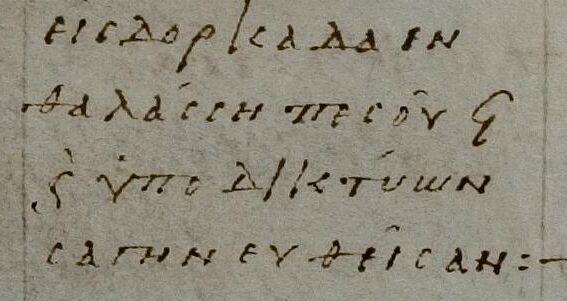 εις δορκαδα εν
θαλάσση πεσοῦς
ϛ ὑπο δικτύων
σαγηνευθεῖσαν:-